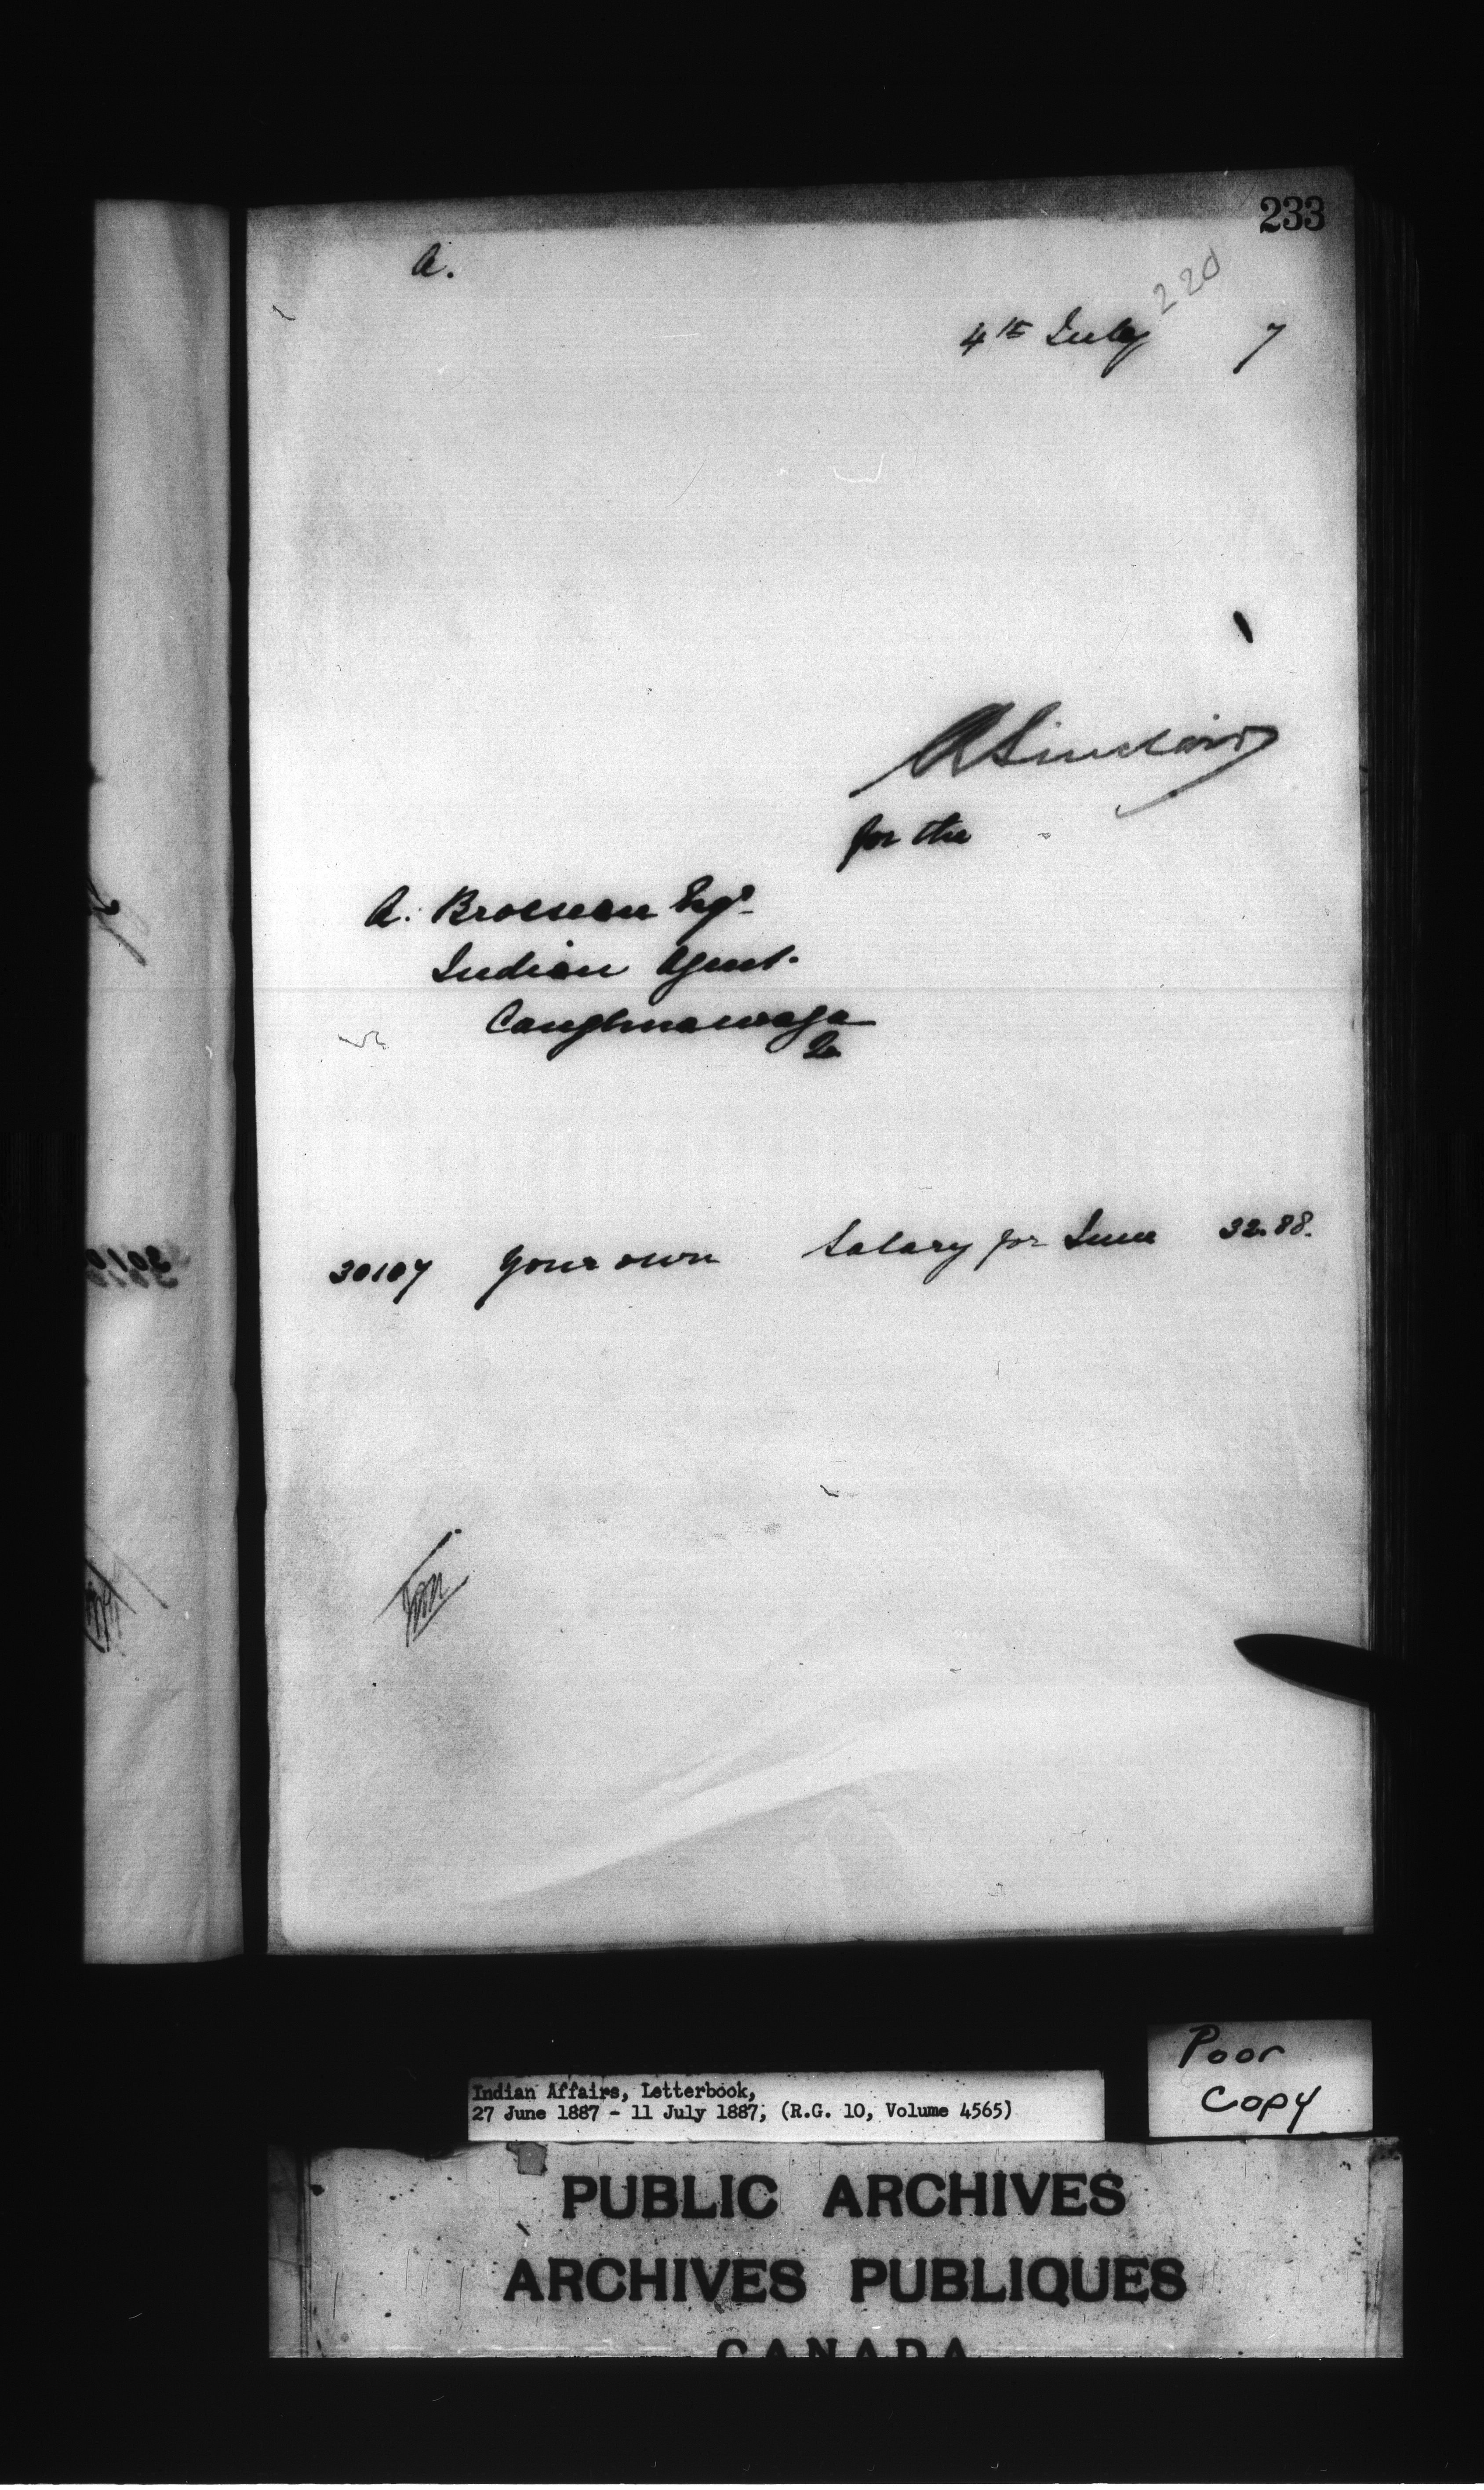 233
a.
220
4th July 7
A Sinclair
for the
A. Brosseau Esqr
Indian Agent.
Caughnawaga
Q
30107 your own Salary for June 32.88.
Indian Affairs, Letterbook,
27 June 1887 - 11 July 1887, (R.G. 10, Volume 4565)
Poor
Copy
PUBLIC ARCHIVES
ARCHIVES PUBLIQUES
CANADA